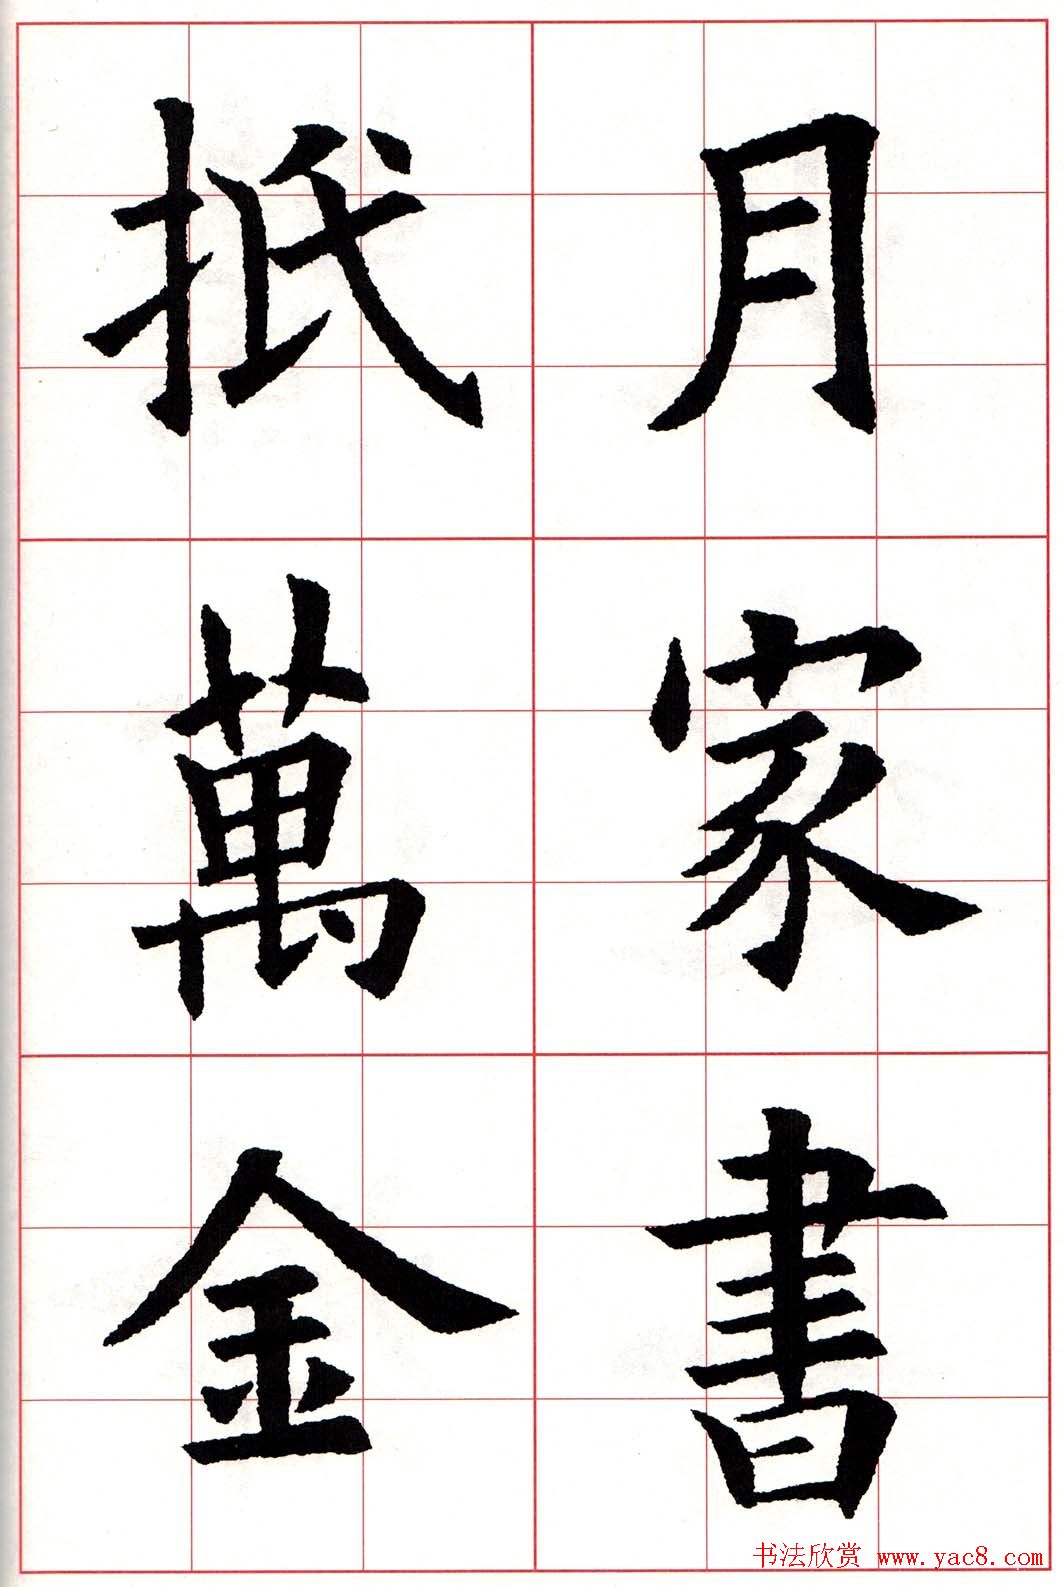 月家書
抵萬金
书法欣赏 www.yac8.com